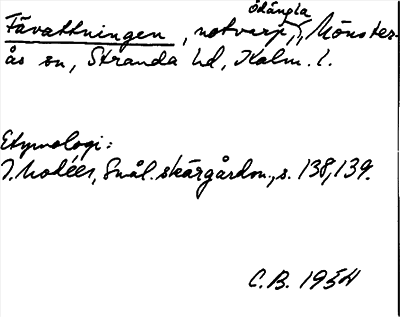 Ödängla
Fävattningen, notvarp, Mönster-
ås sn, Stranda hd, Kalm. l.
Etymologi:
I. Modéer, Smål. skärgårdsn., s. 138, 139.
C.B. 1954